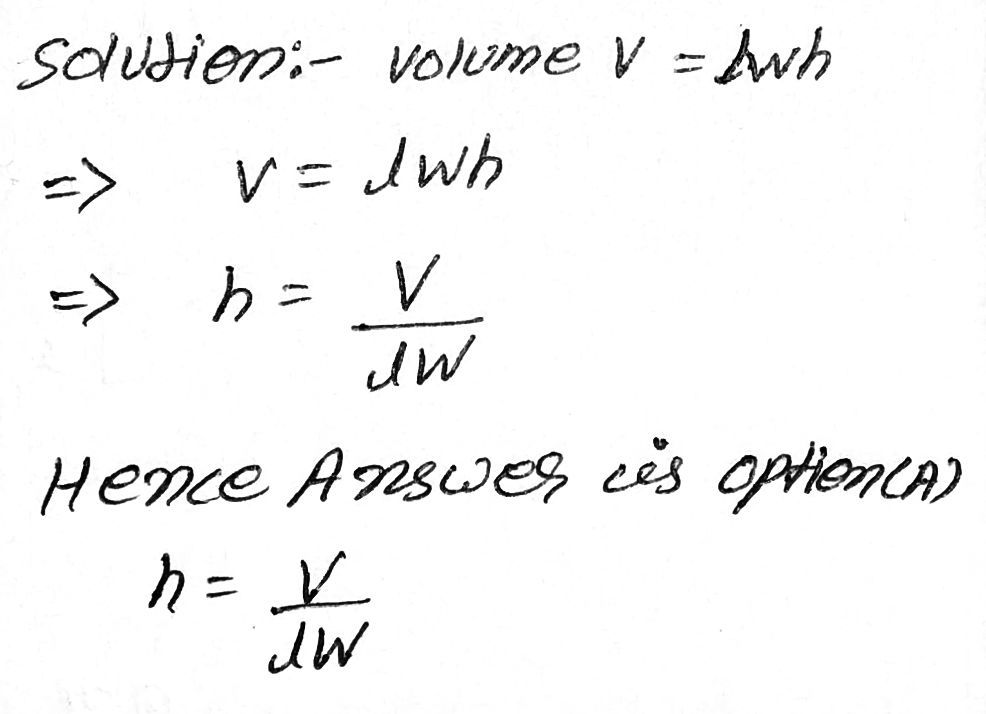 Solution:- volume V = lwh
=> V = lwh
=> h = V/lW
Hence Answer is option(A)
h = V/lW